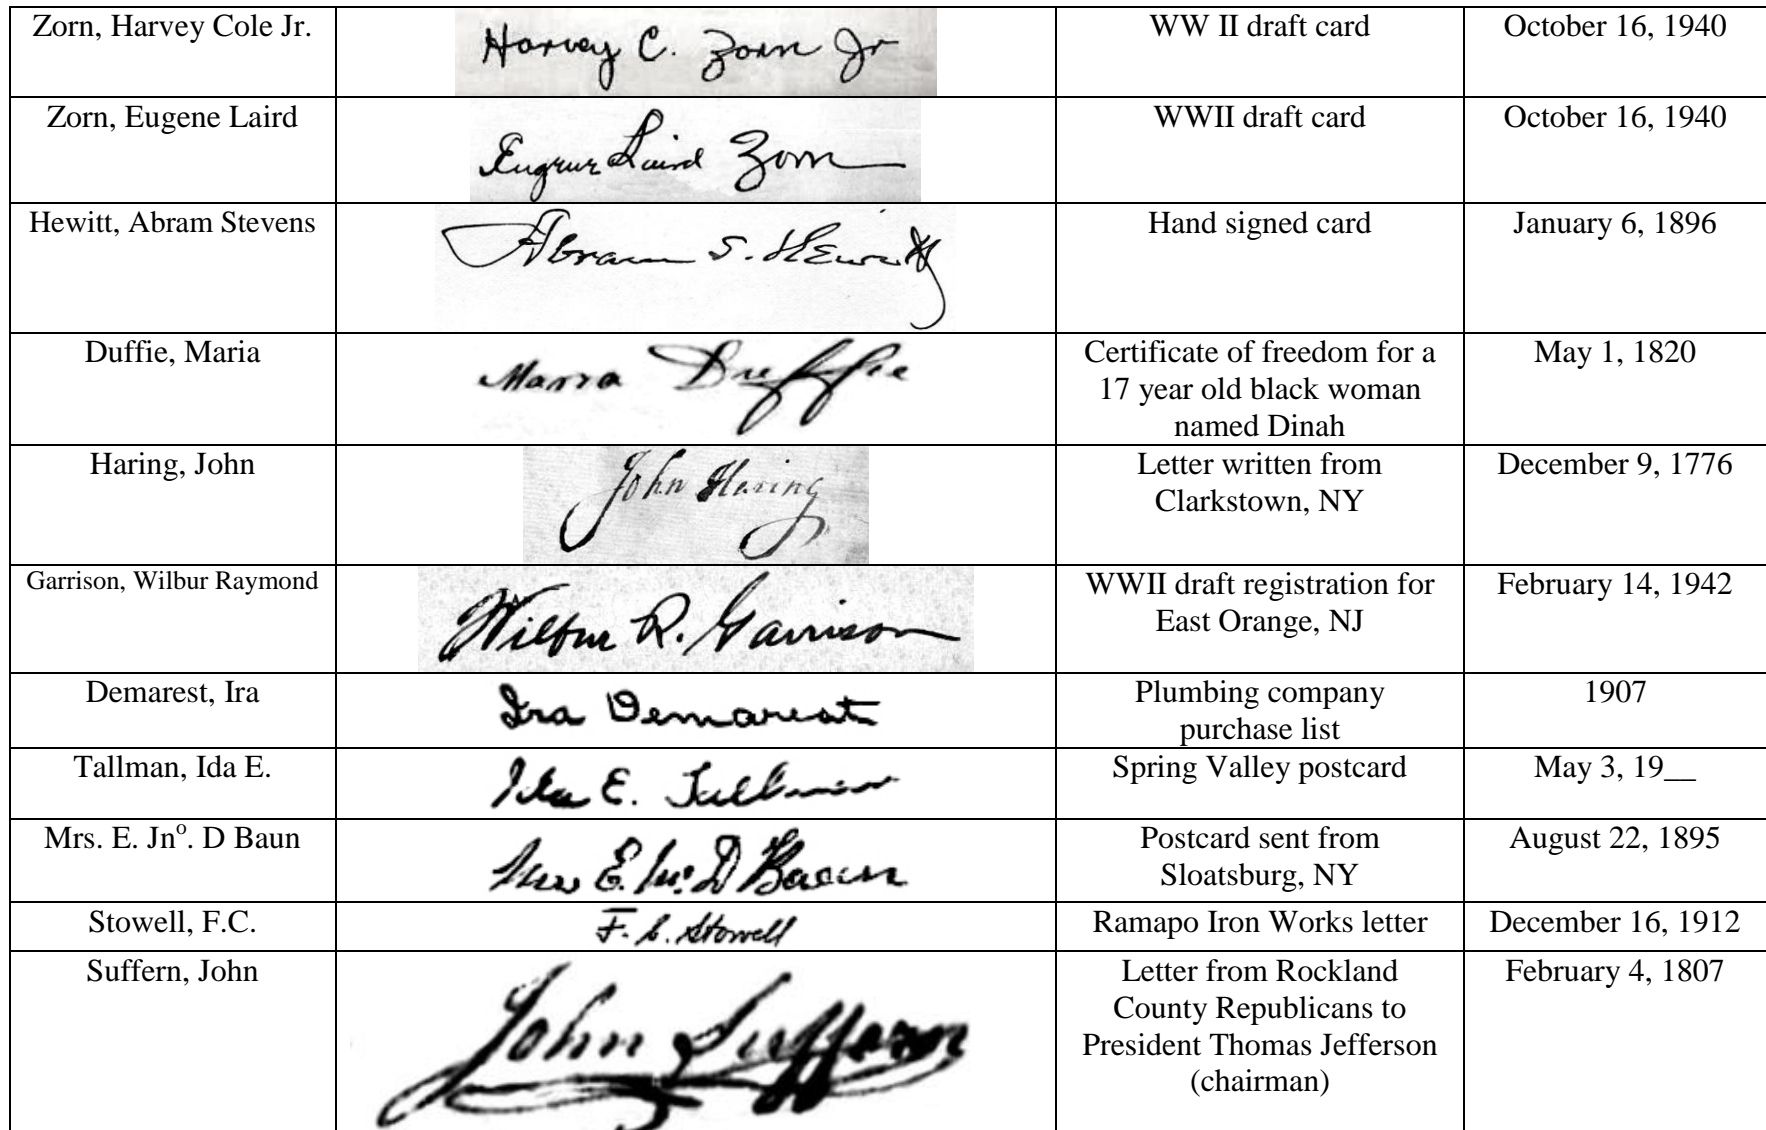 Zorn, Harvey Cole Jr.
Harvey C. Zorn Jr
WW II draft card
October 16, 1940
Zorn, Eugene Laird
Eugene Laird Zorn
WWII draft card
October 16, 1940
Hewitt, Abram Stevens
Abram S. Hewitt
Hand signed card
January 6, 1896
Duffie, Maria
Maria Duffie
Certificate of freedom for a
17 year old black woman
named Dinah
May 1, 1820
Haring, John
John Haring
Letter written from
Clarkstown, NY
December 9, 1776
Garrison, Wilbur Raymond
Wilbur R. Garrison
WWII draft registration for
East Orange, NJ
February 14, 1942
Demarest, Ira
Ira Demarest
Plumbing company
purchase list
1907
Tallman, Ida E.
Ida E. Tallman
Spring Valley postcard
May 3, 19__
Mrs. E. Jnº. D Baun
Mrs E. Jnº. D Baun
Postcard sent from
Sloatsburg, NY
August 22, 1895
Stowell, F.C.
F. C. Stowell
Ramapo Iron Works letter
December 16, 1912
Suffern, John
John Suffern
Letter from Rockland
County Republicans to
President Thomas Jefferson
(chairman)
February 4, 1807